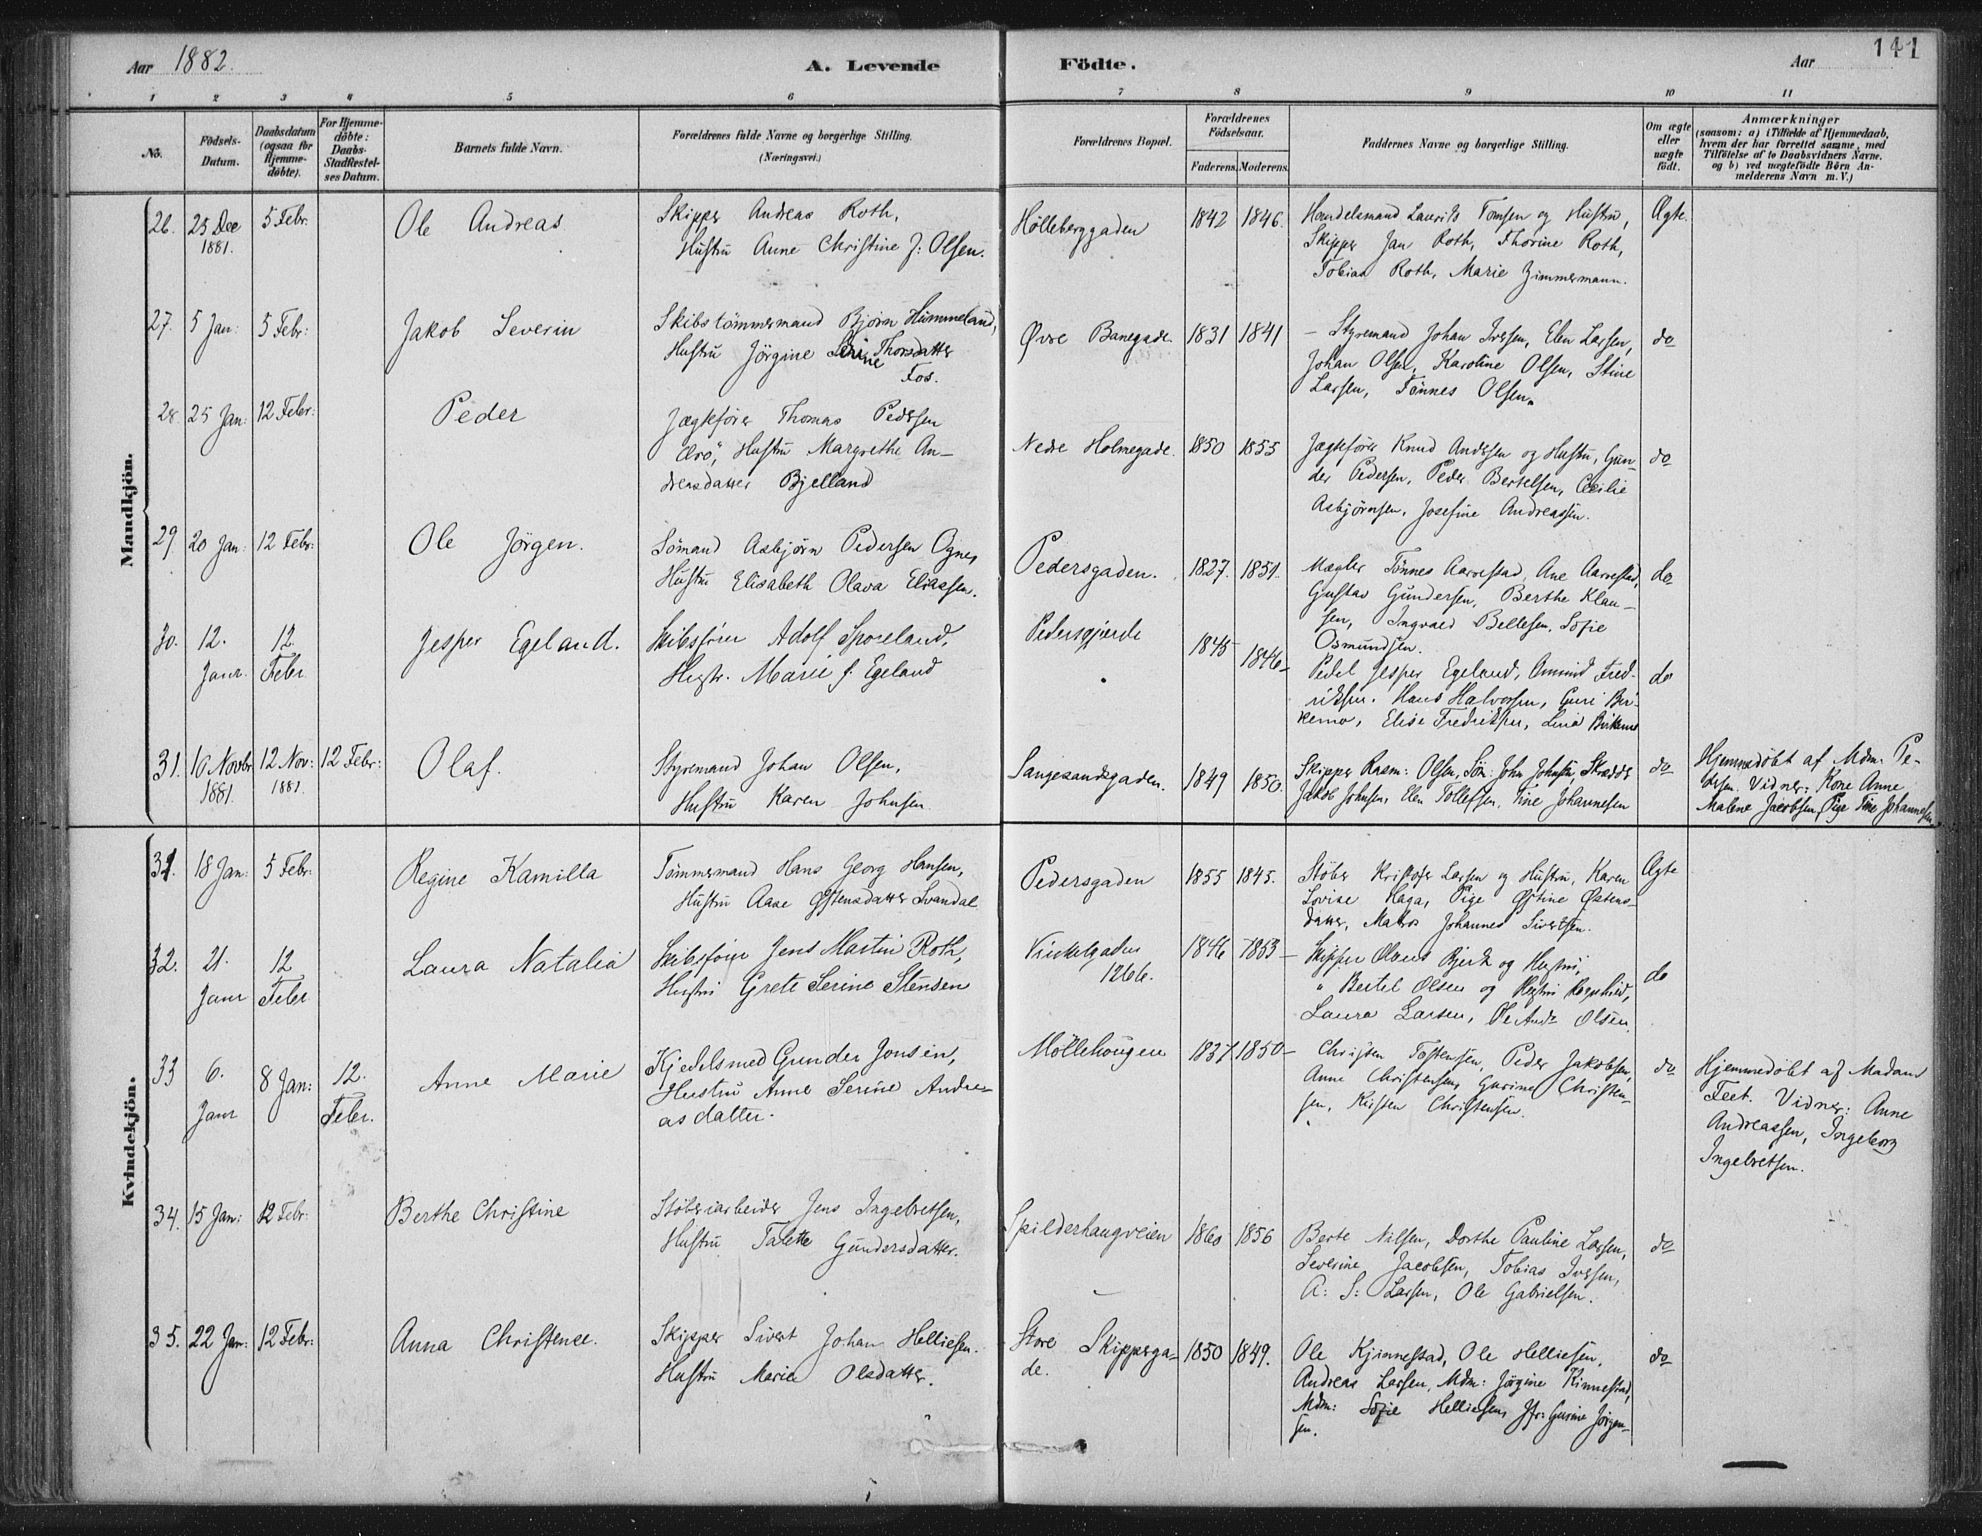 Aar 1882.
A. Levende Födte.
Aar
141
1 2 3 4 5 6 7 8 9 10 11
No.
Födsels-Datum.
Daabsdatum (ogsaa for Hjemme-döbte).
For Hjemme-döbte: Daabs-Stadfæstel-ses Datum.
Barnets fulde Navn.
Forældrenes fulde Navne og borgerlige Stilling.
(Næringsvei.)
Forældrenes Bopæl.
Forældrenes Födselsaar.
Faderens. Moderens.
Faddernes Navne og borgerlige Stilling.
Om ægte eller uægte födt.
Anmærkninger
(saasom: a) i Tilfælde af Hjemmedaab, hvem der har forrettet samme, med Tilföielse af to Daabsvidners Navne. og b) ved uægtefödte Börn Anmelderens Navn m. V.)
Mandkjön.
26. 25 Dec 1881. 5 Febr. Ole Andreas
Skipper Andreas Roth,
Hustru Anne Christine f: Olsen.
Hölleberggaden 1842 1846.
Handelsmand Laurits Tønsen og Hustru,
Skipper Jan Roth, Thorine Roth,
Tobias Roth, Marie Zimmermann.
Ægte
27. 5 Jan: 5 Febr: Jakob Severin
Skibstömmermand Bjørn Hummeland,
Hustru Jörgine Serine Thorsdatter
Fos.
Øvre Banegade. 1831 1841
– Styrmand Johan Iversen, Elen Larsen,
Johan Olsen, Karoline Olsen, Stine
Larsen, Tønnes Olsen.
do
28. 25 Jan: 12 Febr: Peder
Jægtefører Thomas Pedersen
Ærö, Hustru Margrethe An-
dreasdatter Bjelland
Nedre Holmegade. 1850 1855
Jægtefører Knud Andersen og Hustru, Gun-
der Pedersen, Peder Bertelsen, Cecilie
Asbjørnsen, Josefine Andreassen.
do
29 20 Jan: 12 Febr: Ole Jörgen.
Sömand Asbjørn Pedersen Ognes,
Hustru Elisabeth Olava Eliassen.
Pedersgaden. 1827. 1851.
Mægler Tönnes Aarrestad, Ane Aarrestad,
Gustav Gundersen, Berthe Klau-
sen, Ingvald Bellesen, Sofie
Osmundsen.
do
30. 12. Janr. 12 Febr. Jesper Egeland.
Skibsfører Adolf Sporeland,
Hustr. Marie f. Egeland
Pedersgjerde 1845 1846–
Pedel Jesper Egeland, Omund Fred-
riksen, Hans Halvorsen, Guri Bir-
kemo, Elise Fredriksen, Lina Birkemo
do
31. 10 Novbr 1881. 12 Nov: 1881. 12 Febr: Olaf.
Styrmand Johan Olsen,
Hustru Karen Johnsen
Langesandsgaden. 1849 1850.
Skipper Rasm: Olsen, Söm: John Johnsen, Skrædder
Jakob Johnsen, Elen Tollefsen, Tine Johannesen
do
Hjemmedöbt af Mdm. Pe-
dersen. Vidner: Kone Anne
Malene Jacobsen, Pige Tine Johannesen.
Kvindekjön.
31. 18 Jan: 5 Febr: Regine Kamilla
Tømmermand Hans Georg Hansen,
Hustru Aase Østensdatter Svandal
Pedersgaden 1855 1845.
Støber Kristofer Larsen og Hustru, Karen
Lovise Haga, Pige Østine Østens-
datter, Matros Johannes Sivertsen.
Ægte
32. 21. Janr 12 Febr Laura Natalia
Skibsfører Jens Martin Roth,
Hustru Grete Serine Stensen
Vinkelgaden
126b.
1846 1853
– Skipper Olaus Bjerk og Hustru,
" Bertel Olsen og Hustru Ragnhild,
Laura Larsen, Ole Andr. Olsen.
do
33 6. Janr 8 Jan: 12. Febr. Anne Marie
Kjedelsmed Gunder Jonsen,
Hustru Anne Serine Andre-
asdatter.
Möllehougen 1837 1850–
Christen Tostensen, Peder Jakobsen,
Anne Christensen, Gurine Christen-
sen, Kirsten Christensen.
do
Hjemmedöbt af Madam
Feet. Vidner: Anne
Andreassen, Ingeborg
Ingebretsen.
34. 15 Jan: 12 Febr: Berthe Christine
Støberiarbeider Jens Ingebretsen,
Hustru Talette Gundersdatter.
Spilderhaugveien 1860 1856
Berte Nilsen, Dorthe Pauline Larsen,
Severine Jacobsen, Tobias Iversen,
A: S: Larsen, Ole Gabrielsen.
do
35. 22 Jan: 12 Febr: Anna Christence.
Skipper Sivert Johan Helliesen.
Hustru Marie Olsdatter.
Store Skipperga-
de.
1850 1849.
Ole Kjinnestad, Ole Helliesen,
Andreas Larsen, Mdm: Jörgine Kinnestad,
Mdm: Sofie Helliesen, Jfr: Gusine Jörgen-
sen.
do